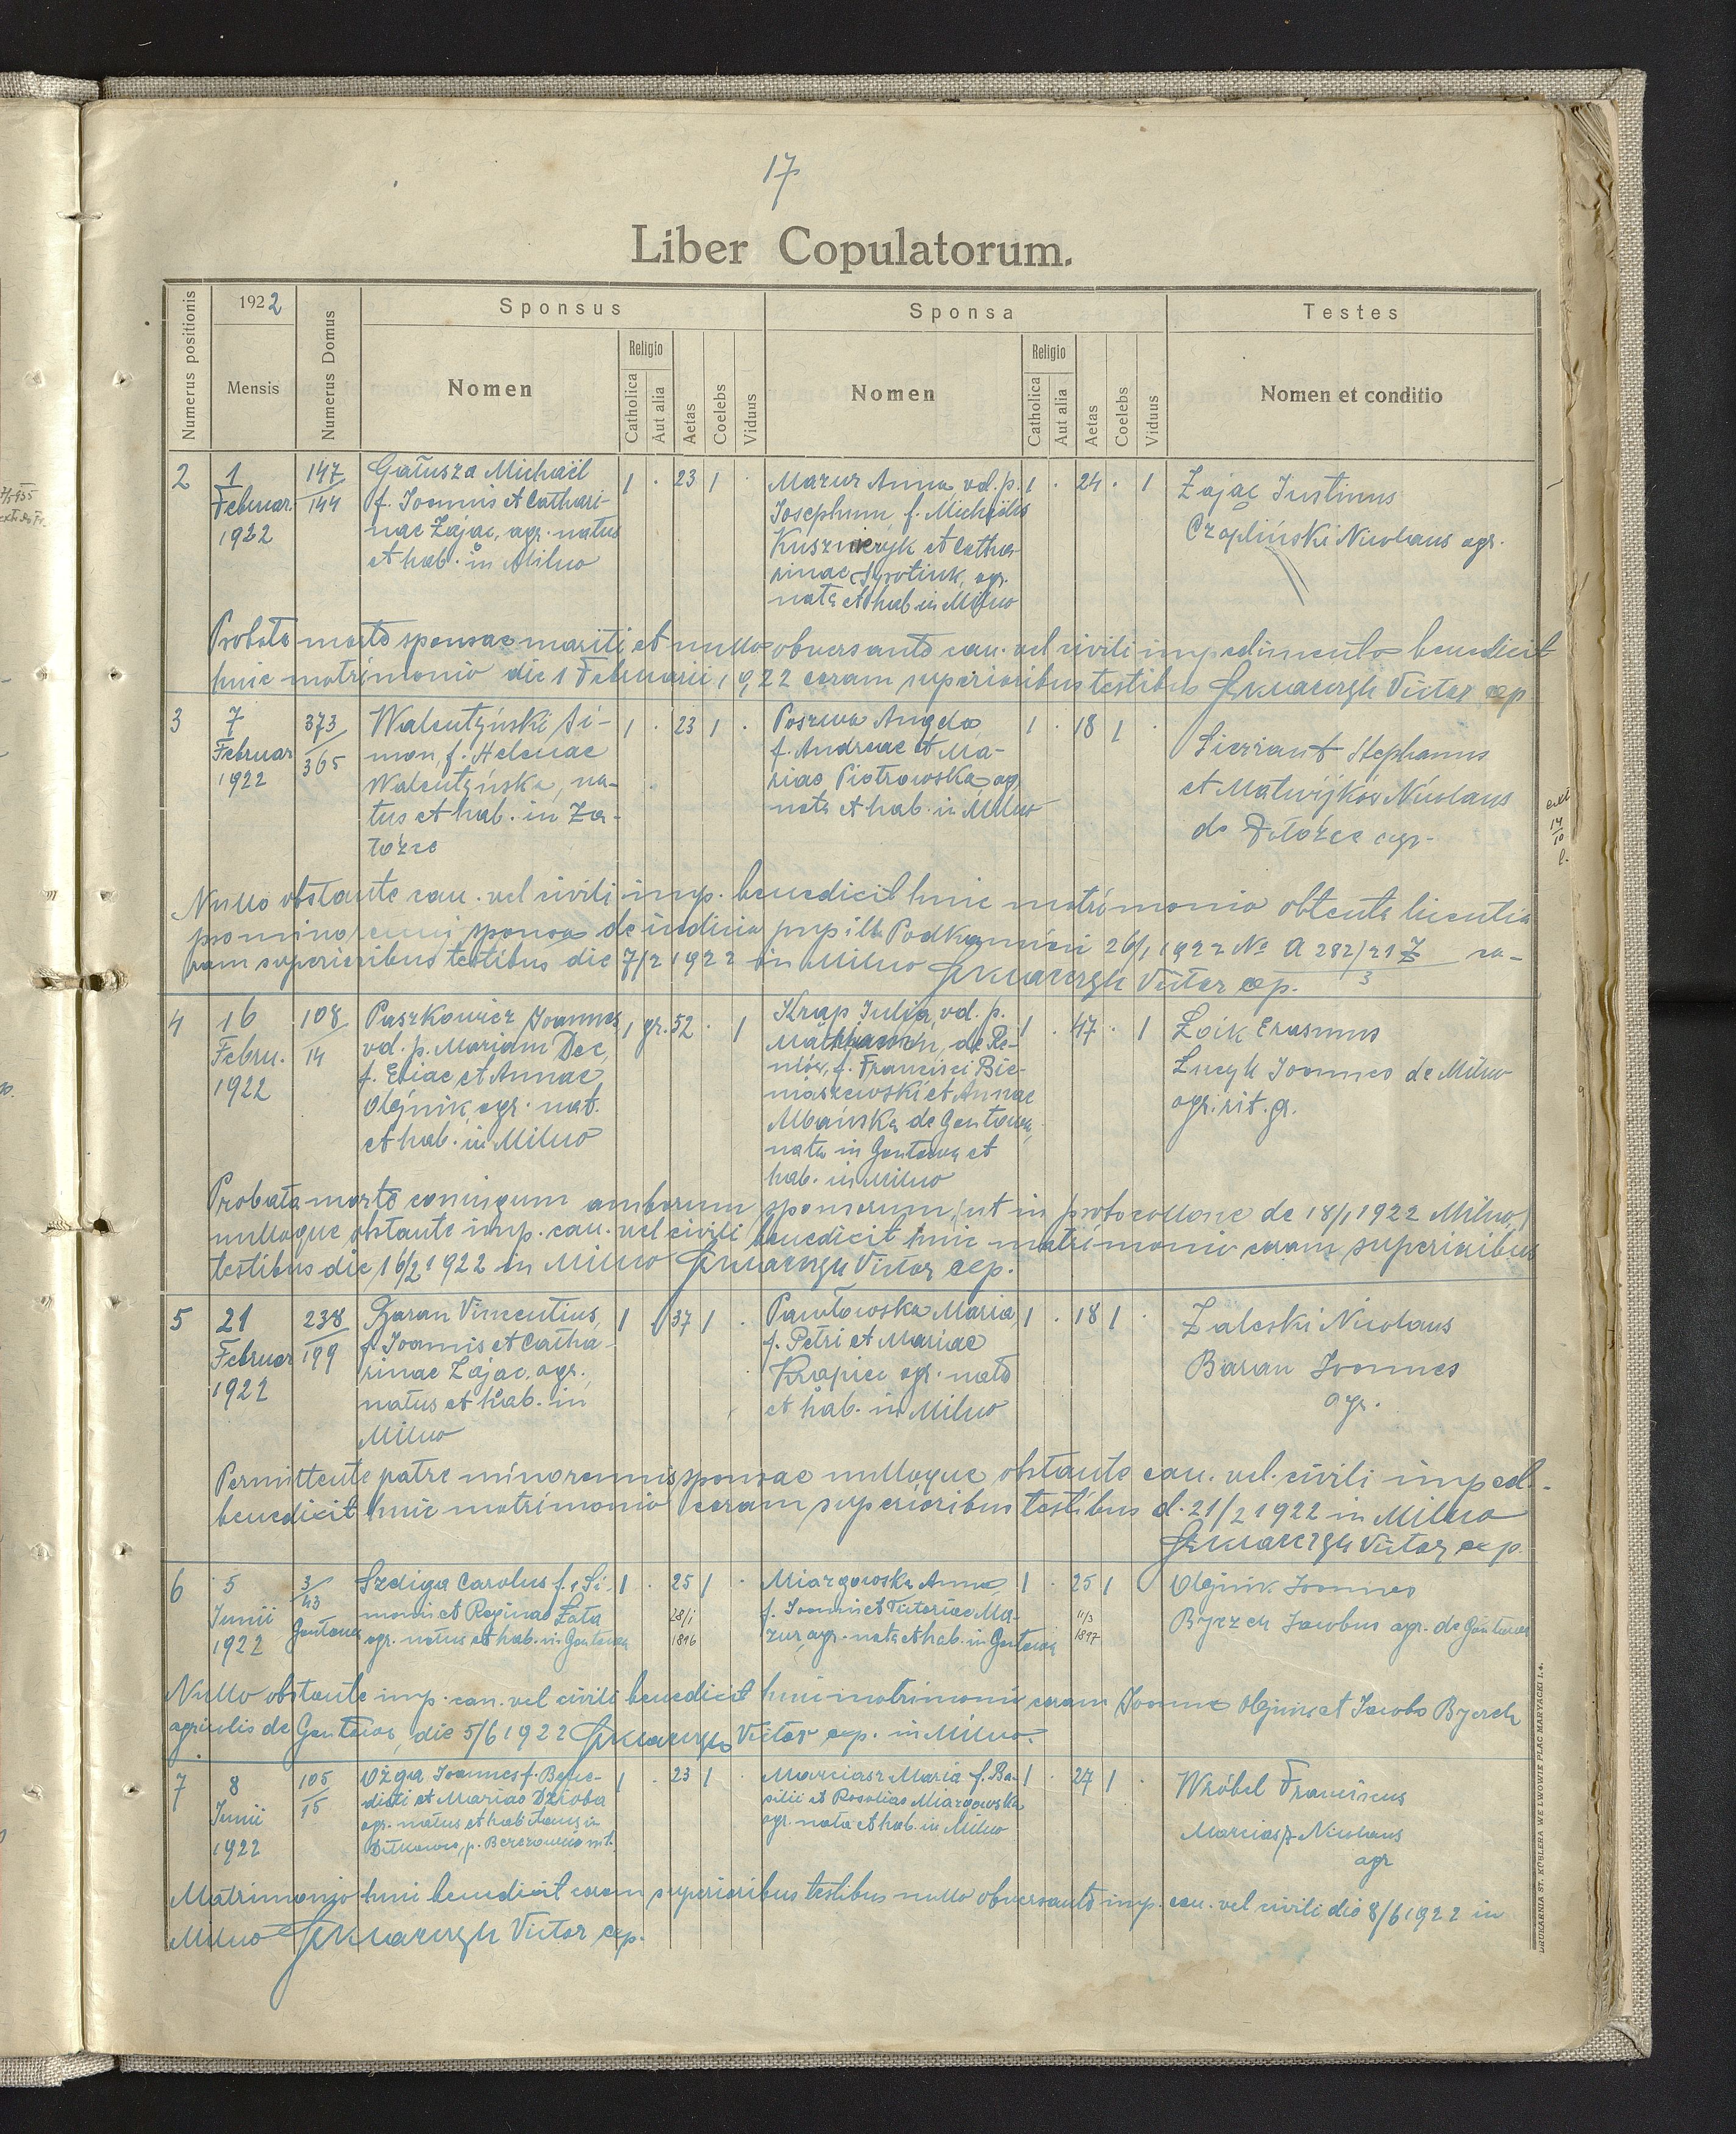 17
Liber Copulatorum.
Numerus positionis
1922
Mensis
Numerus Domus
Sponsus
Nomen
Religio
Catholica
Aut alia
Aetas
Coelebs
Viduus
Sponsa
Nomen
Religio
Catholica
Aut alia
Aetas
Coelebs
Viduus
Testes
Nomen et conditio
2
1
Februar.
1922
147
144
Gałusza Michaël
f. Joannis et Cathari-
nae Zając, agr. natus
et hab. in Milno
1 . 23 1 .
Mazur Anna vd. p.
Josephum, f. Michaëlis
et Catha-
rinae agr.
nata et hab in Milno
1 . 24 . 1
Zając Justinus
Czapliński Nicolaus agr.
Probata morte sponsae mariti et nullo obversante can. vel civili impedimento benedicit
huic matrimonio die 1 Februarii 1922 coram superioribus testibus Victor exp
3
7
Februar
1922
373
365
Walentyński Si-
mon, f. Helenae
Walentyńska, na-
tus et hab. in Za-
łoźce
1 . 23 1 .
Poszwa Angela
f. Andreae et Ma-
riae Piotrowska agr
nata et hab. in Milno
1 . 18 1 .
Sierżant Stephanus
et Matwijków Nicolaus
de agr.
Nullo obstante can. vel civili imp. benedicit huic matrimonio obtenta licentia
pro sponsa de pupill. Podkamień 26/1 1922 No A 282/21 Z/3 co-
ram superioribus testibus die 7/2 1922 in Milno Victor exp.
4
16
Febru.
1922
108
14
Paszkowicz Joannes
vd. p. Mariam Dec,
f. Eliae et Annae
Olejnik, agr. nat.
et hab. in Milno
1 gr. 52 . 1
Krap Julia, vd. p.
de Re-
niów, f. Francisci Bie-
niaszewski et Annae
de Gontowa,
nata in Gontowa et
hab. in Milno
1 . 47 . 1
Zoik Erasmus
Łucyk Joannes de Milno
agr. rit. g.
Probata morte coniugum amborum sponsorum, (ut in protocollone de 18/1 1922 Milno,)
nulloque obstante imp. can. vel civili benedicit huic matrimonio coram superioribus
testibus die 16/2 1922 in Milno Victor exp.
5
21
Februar
1922
238
199
Baran Vincentius,
f. Joannis et Catha-
rinae Zając, agr.,
natus et hab. in
Milno
1 37 1 .
Pawłowska Maria,
f. Petri et Mariae
Krąpiec agr. nata
et hab. in Milno
1 . 18 1 .
Zaleski Nicolaus
Baran Joannes
agr.
Permittente patre minorennis sponsae nulloque obstante can. vel. civili imped.
benedicit huic matrimonio coram superioribus testibus d. 21/2 1922 in Milno
Victor exp.
6
5
Junii
1922
3
43
Gontowa
Szeliga Carolus f. Si-
monis et Reginae Łata
agr. natus et hab. in Gontowa
1 . 25 1 .
28/1
1896
Miazgowska Anna
f. Joannis et Victoriae Ma-
zur, agr. nata et hab. in Gontowa
1 . 25 1
11/3
1897
Olejnik Joannes
Byczek Jacobus agr. de Gontowa
Nullo obstante imp. can. vel civili benedicit huic matrimonio coram Joanne Olejnik et Jacobo
agricolis de Gontowa, die 5/6 1922 Victor exp. in Milno.
7
8
Junii
1922
105
15
Ożga Joannes f. Bene-
dicti et Mariae Dzioba
agr. natus et habitans in
1 . 23 1
Marciasz Maria f. Ba-
silii et Rosaliae Miazgowska
agr. nata et hab. in Milno
1 . 27 1 .
Wróbel Franciscus
Marciasz Nicolaus
agr
Matrimonio huic benedicit coram superioribus testibus nullo obversante imp. can. vel civili die 8/6 1922 in
Milno Victor exp.
DRUKARNIA ST. KÖBLERA WE LWOWIE PLAC MARYACKI L. 4.